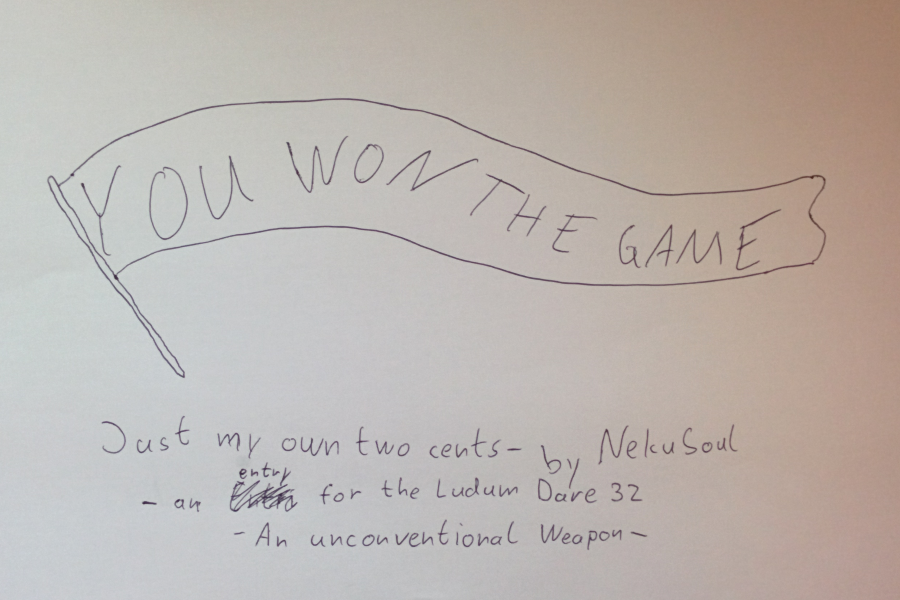 YOU WON THE GAME
Just my own two cents - by NekuSoul
entry
- an for the Ludum Dare 32
- An unconventional Weapon -